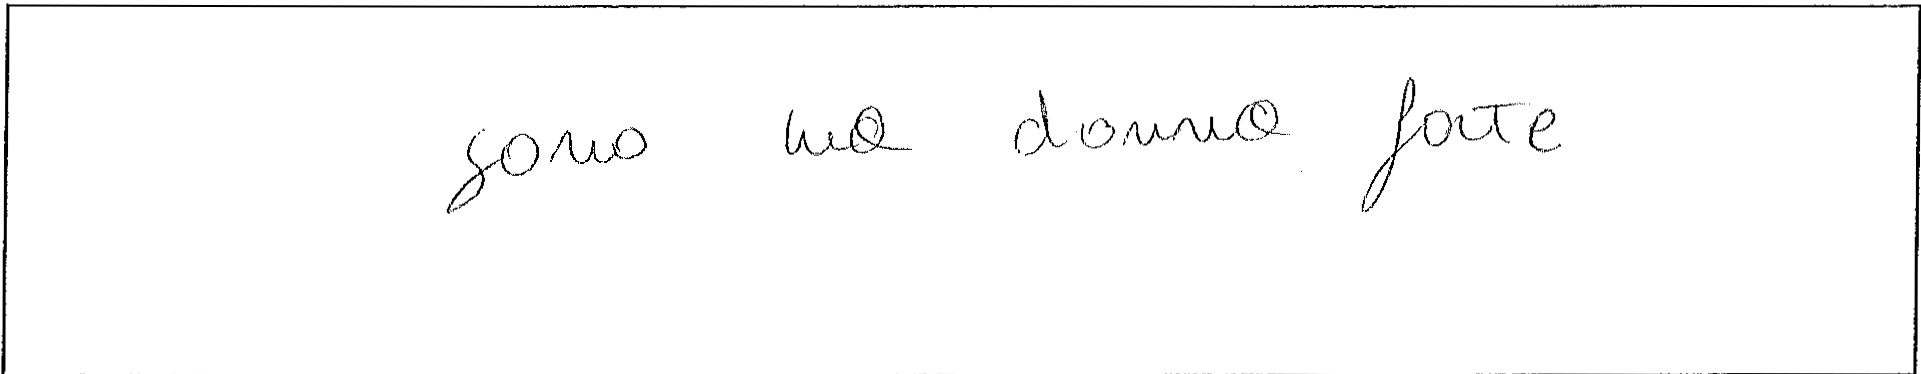 sono una donna forte